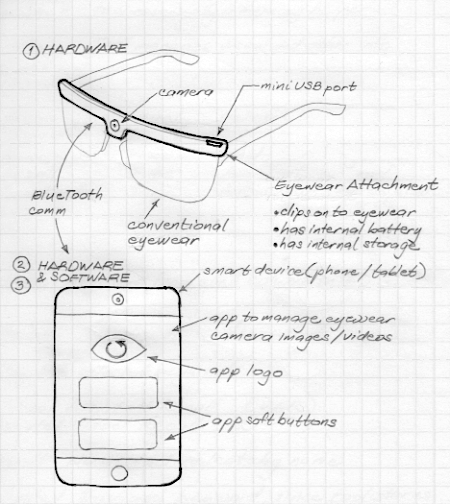 ① HARDWARE
camera
mini USB port
BlueTooth
comm
conventional
eyewear
Eyewear Attachment
• clips on to eyewear
• has internal battery
• has internal storage
② HARDWARE
③ & SOFTWARE
smart device (phone/tablet)
app to manage eyewear
camera images/videos
app logo
app soft buttons